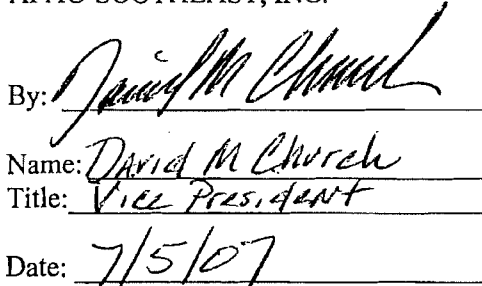 SOUTHEAST, INC.
By: David M Church
Name: David M Church
Title: Vice President
Date: 7/5/07